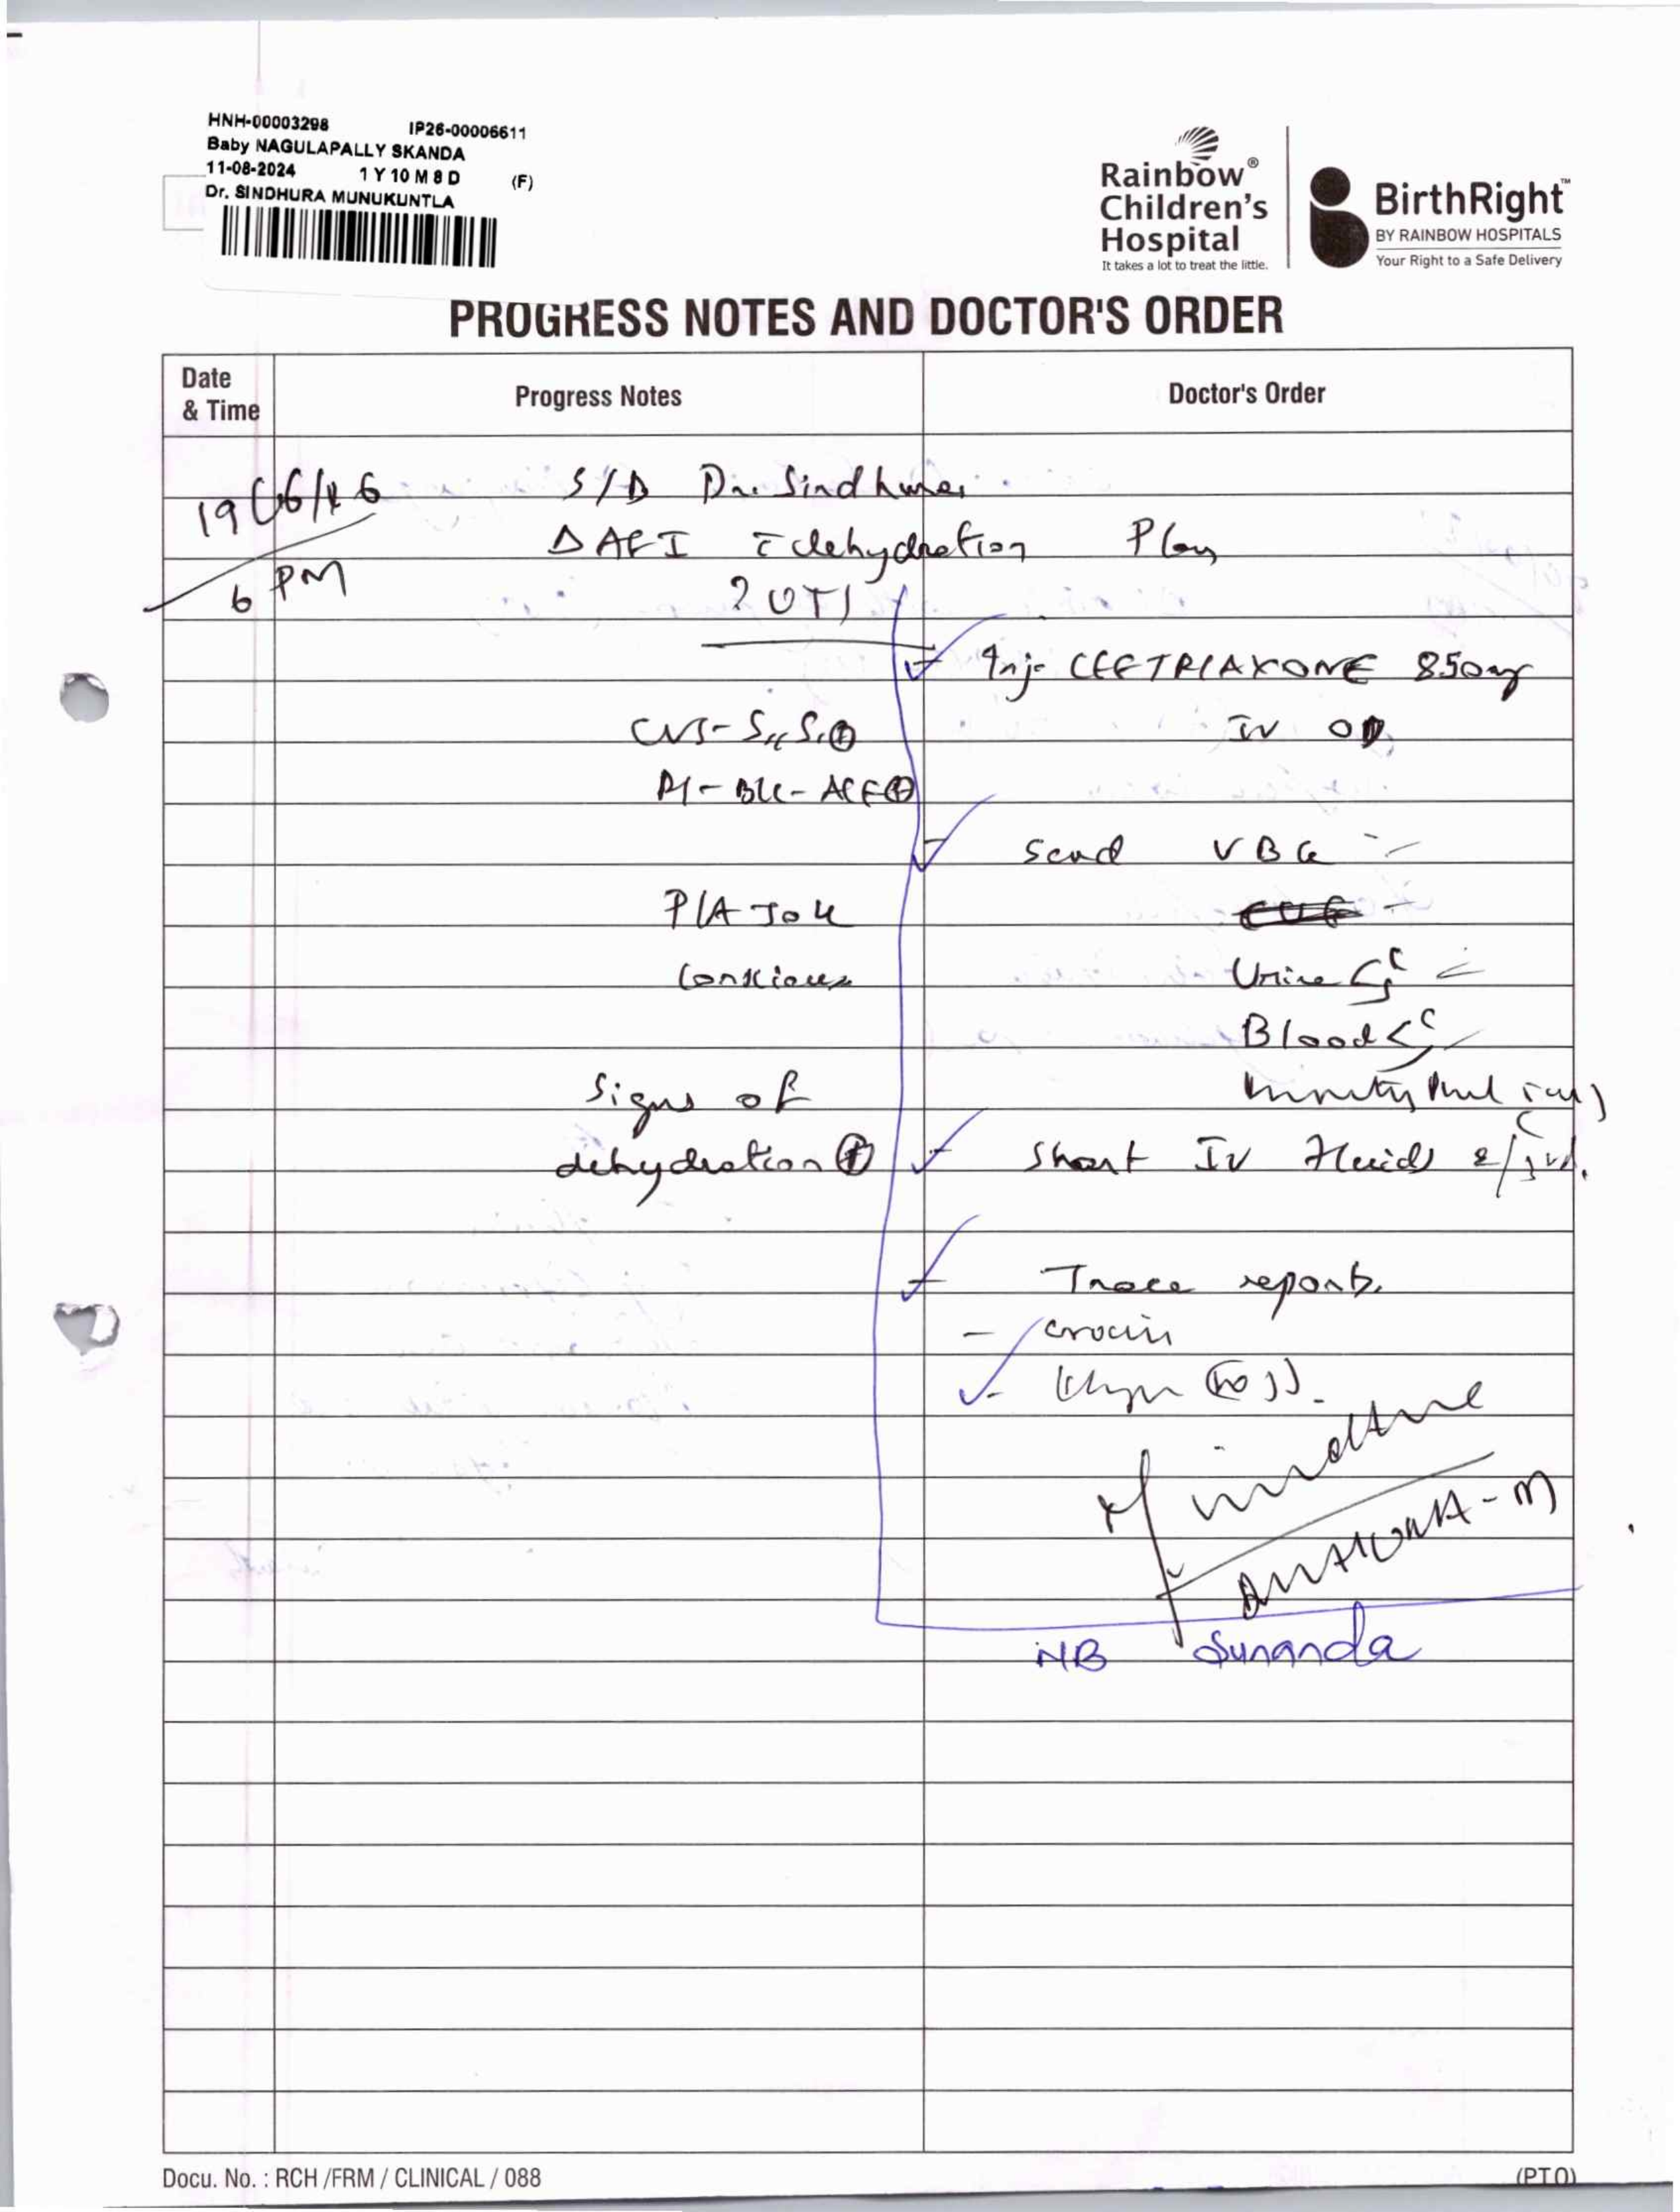 HNH-00003298 IP26-00006611
Baby NAGULAPALLY SKANDA
11-08-2024 1 Y 10 M 8 D (F)
Dr. SINDHURA MUNUKUNTLA
Rainbow® Children's Hospital
It takes a lot to treat the little.
BirthRight™
BY RAINBOW HOSPITALS
Your Right to a Safe Delivery
PROGRESS NOTES AND DOCTOR'S ORDER
Date & Time Progress Notes Doctor's Order
19/06/26 S/B Dr. Sindhura
6 PM
Δ AFI c̄ dehydration Plan
? UTI
Inj- CEFTRIAXONE 850mg
CVS- S₁, S₂ ⊕ IV OD
BLL- AEE ⊕
Send VBG
P/A soft
CUE
Conscious Urine C/S
Blood C/S
Signs of
dehydration ⊕ Start IV fluids
Trace reports.
- Crocin
NB Sunanda
Docu. No. : RCH /FRM / CLINICAL / 088 (PTO)